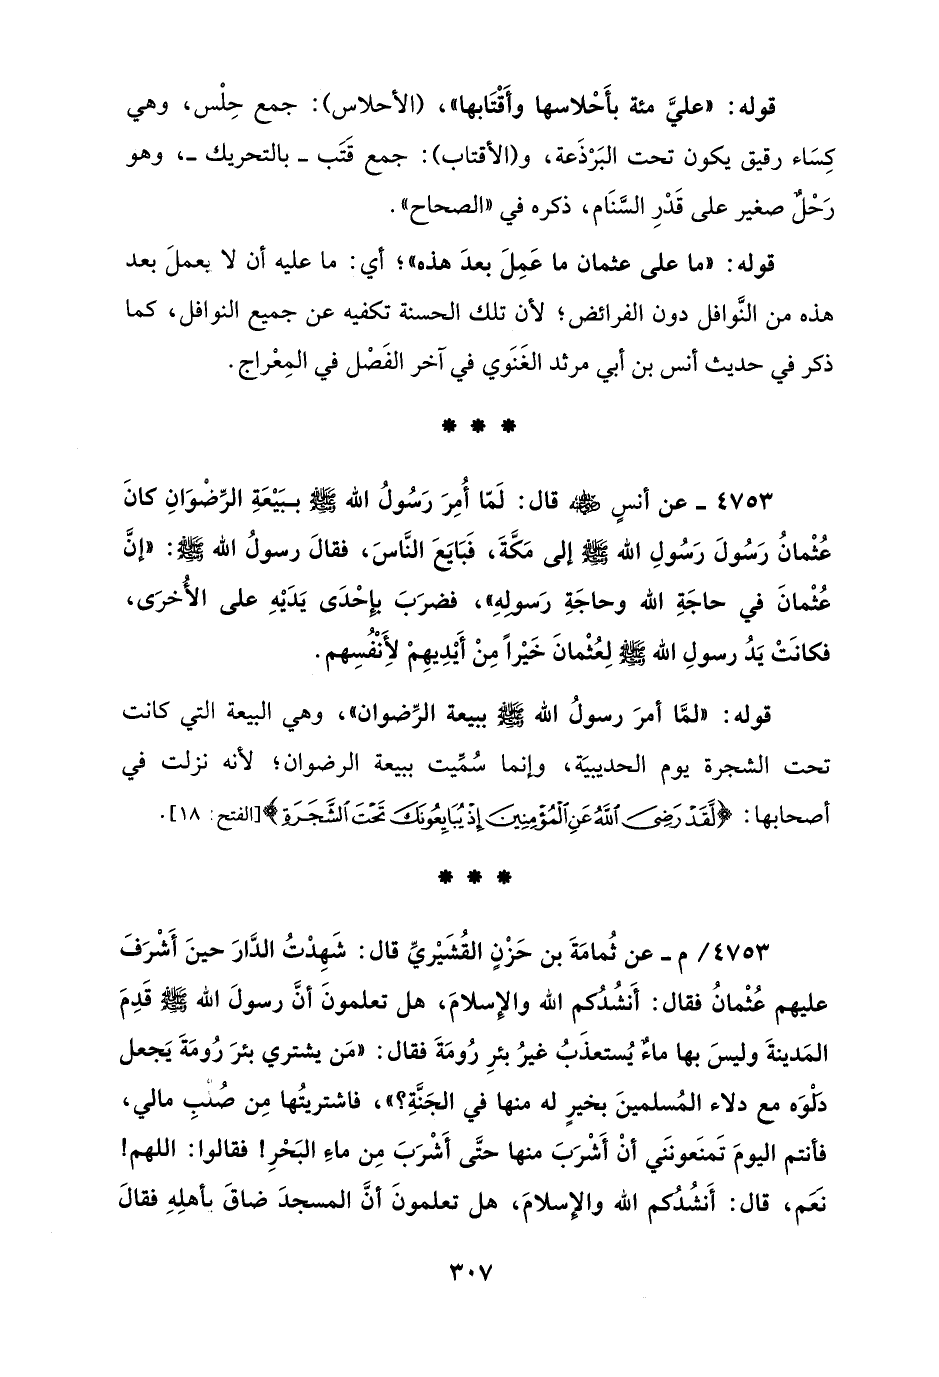 قوله: «عليَّ مئة بأَحْلاسها وأَقْتَابها»، (الأحلاس): جمع حِلْس، وهي
كِسَاء رقيق يكون تحت البَرْذَعة، و(الأقتاب): جمع قَتَب ـ بالتحريك ـ، وهو
رَحْلٌ صغير على قَدْرِ السَّنَام، ذكره في «الصحاح».
قوله: «ما على عثمان ما عَمِلَ بعدَ هذه»؛ أي: ما عليه أن لا يعملَ بعد
هذه من النَّوافل دون الفرائض؛ لأن تلك الحسنة تكفيه عن جميع النوافل، كما
ذكر في حديث أنس بن أبي مرثد الغَنَوي في آخر الفَصْل في المِعْراج.
* * *
٤٧٥٣ ـ عن أنسٍ ﵁ قال: لَمّا أُمِرَ رَسُولُ الله ﷺ بـبَيْعَةِ الرِّضْوَانِ كانَ
عُثْمانُ رَسُولَ رَسُولِ الله ﷺ إلى مَكَّةَ، فَبَايَعَ النَّاسَ، فقالَ رسولُ الله ﷺ: «إنَّ
عُثْمانَ في حاجَةِ الله وحاجَةِ رَسولِهِ»، فضرَبَ بِإِحْدَى يَدَيْهِ على الأُخرَى،
فكانَتْ يَدُ رسولِ الله ﷺ لِعُثْمانَ خَيْراً مِنْ أَيْدِيهِمْ لأَِنْفُسِهم.
قوله: «لمَّا أمرَ رسولُ الله ﷺ ببيعة الرِّضوان»، وهي البيعة التي كانت
تحت الشجرة يوم الحديبيَة، وإنما سُمِّيت ببيعة الرضوان؛ لأنه نزلت في
أصحابها: ﴿لَّقَدْ رَضِيَ ٱللَّهُ عَنِ ٱلْمُؤْمِنِينَ إِذْ يُبَايِعُونَكَ تَحْتَ ٱلشَّجَرَةِ﴾ [الفتح: ١٨].
* * *
٤٧٥٣/ م ـ عن ثُمامَةَ بن حَزْنٍ القُشَيْريِّ قال: شَهِدْتُ الدَّارَ حينَ أَشْرَفَ
عليهم عُثْمانُ فقال: أَنشُدُكم الله والإسلامَ، هل تعلمونَ أنَّ رسولَ الله ﷺ قَدِمَ
المَدينةَ وليسَ بها ماءٌ يُستعذَبُ غيرُ بئرِ رُومَةَ فقال: «مَن يشتري بئرَ رُومَةَ يَجعل
دَلْوَه مع دلاء المُسلمينَ بخيرٍ له منها في الجَنَّةِ؟»، فاشتريتُها مِن صُلْبِ مالي،
فأنتم اليومَ تَمنَعونَني أنْ أَشْرَبَ منها حتَّى أَشْرَبَ مِن ماءِ البَحْرِ! فقالوا: اللهم!
نَعَم، قال: أَنشُدُكم الله والإسلامَ، هل تعلمونَ أنَّ المسجدَ ضاقَ بأهلِهِ فقالَ
٣٠٧